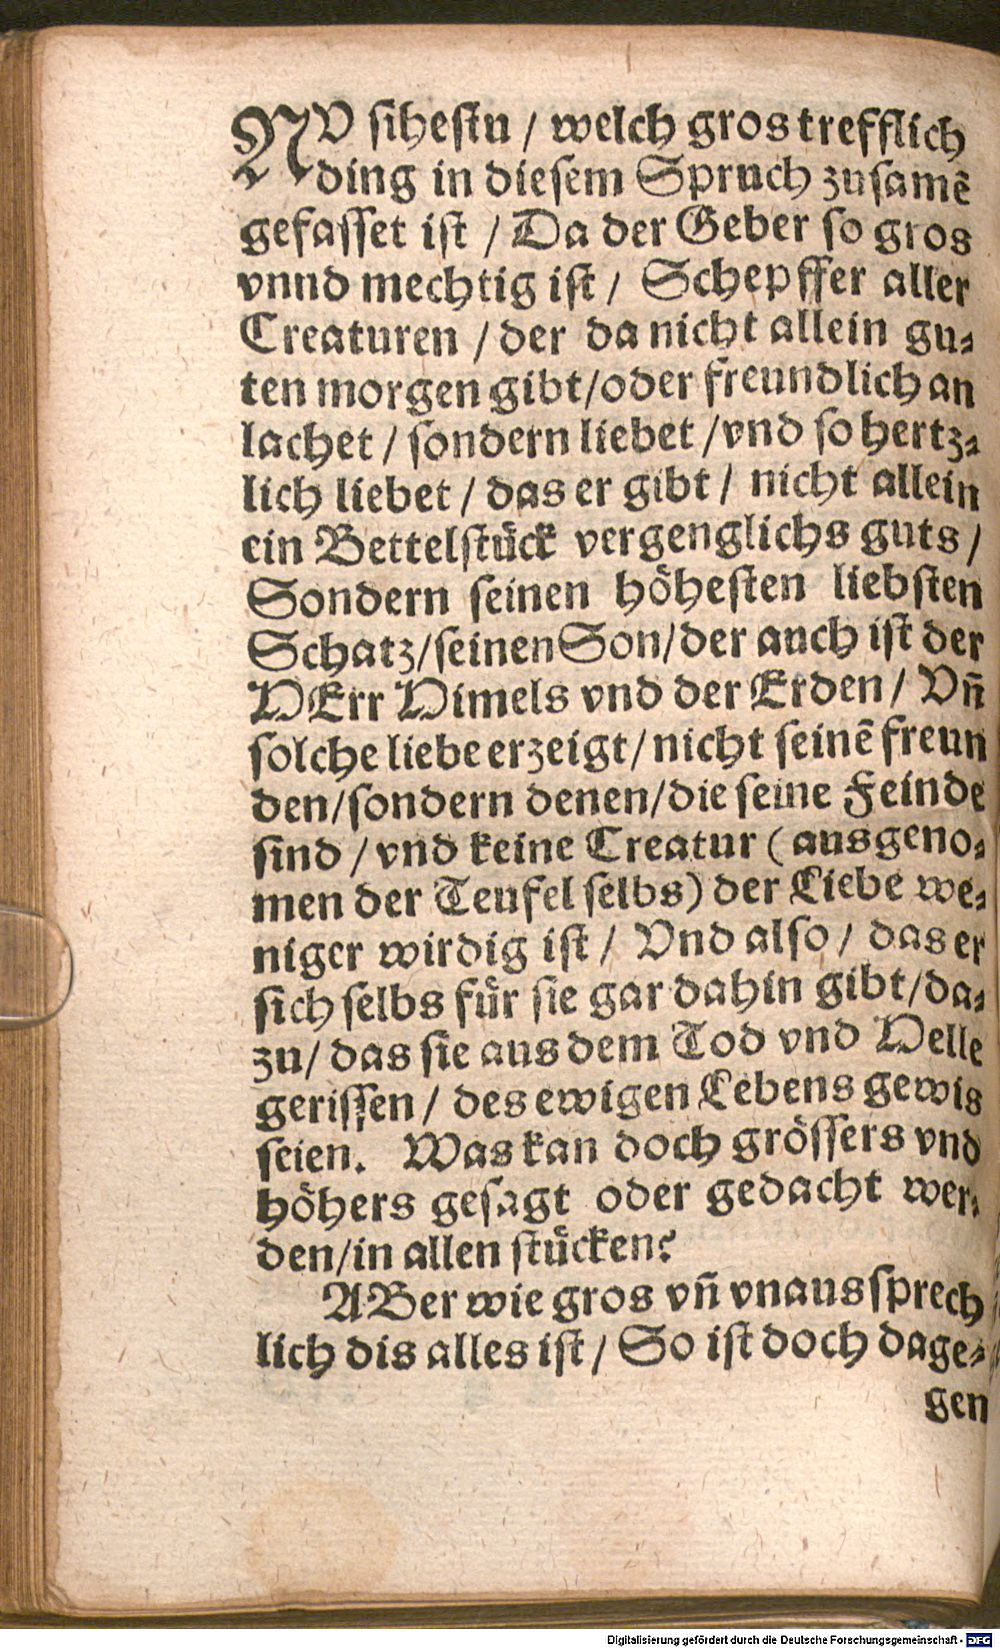 NV sihestu / welch gros trefflich
ding in diesem Spruch zusamẽ
gefasset ist / Da der Geber so gros
vnnd mechtig ist / Schepffer aller
Creaturen / der da nicht allein gu-
ten morgen gibt/oder freundlich an
lachet / sondern liebet /vnd so hertz-
lich liebet / das er gibt / nicht allein
ein Bettelstuͤck vergenglichs guts /
Sondern seinen hoͤhesten liebsten
Schatz/seinen Son/der auch ist der
HErr Himels vnd der Erden / Vñ
solche liebe erzeigt/nicht seinẽ freun
den/sondern denen/die seine Feinde
sind / vnd keine Creatur ( ausgeno-
men der Teufel selbs) der Liebe we-
niger wirdig ist / Vnd also / das er
sich selbs fuͤr sie gar dahin gibt/da-
zu/ das sie aus dem Tod vnd Helle
gerissen / des ewigen Lebens gewis
seien. Was kan doch groͤssers vnd
hoͤhers gesagt oder gedacht wer-
den/in allen stuͤcken?
ABer wie gros vñ vnaussprech
lich dis alles ist / So ist doch dage-
gen
Digitalisierung gefördert durch die Deutsche Forschungsgemeinschaft - DFG